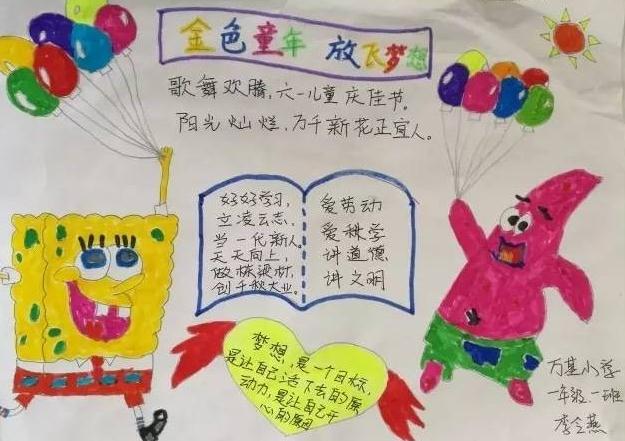 金色童年 放飞梦想
歌舞欢腾，六一儿童庆佳节。
阳光灿烂，万千新花正宜人。
好好学习，
立凌云志，
当一代新人。
天天向上，
做栋梁材，
创千秋大业。
爱劳动
爱科学
讲道德
讲文明
梦想，是一个目标，
是让自己活下去的原
动力，是让自己开
心的原因
万基小学
一年级一班
李会燕